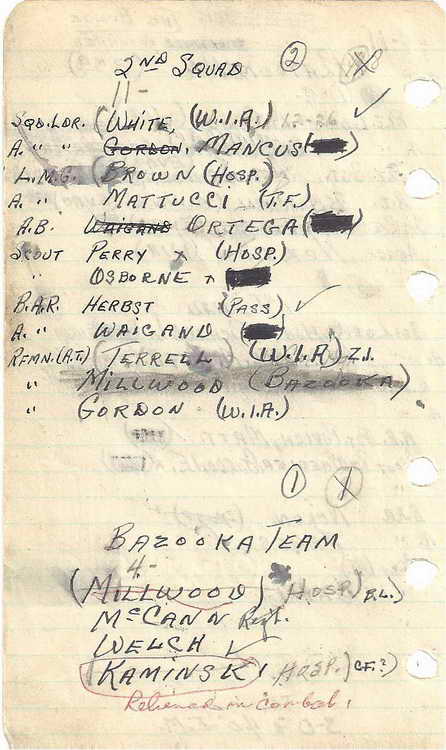 2ND SQUAD 2 X
11-
SQD.LDR. (WHITE, (W.I.A.)
A. " " GORDON, MANCUS ( )
L.M.G. BROWN (HOSP.)
A. " MATTUCCI (T.F.)
A.B. WAIGAND ORTEGA ( )
SCOUT PERRY x (HOSP.)
" OSBORNE x
B.A.R. HERBST (PASS)
A. " WAIGAND ( )
RFMN.(A.T.) (TERRELL (W.I.A.) Z.I.
" MILLWOOD (BAZOOKA)
" GORDON (W.I.A.)
1 X
BAZOOKA TEAM
4-
(MILLWOOD) HOSP.) B.L.)
McCANN Rept.
WELCH
(KAMINSKI HOSP.) (C.F.?)
Relieved in combat.